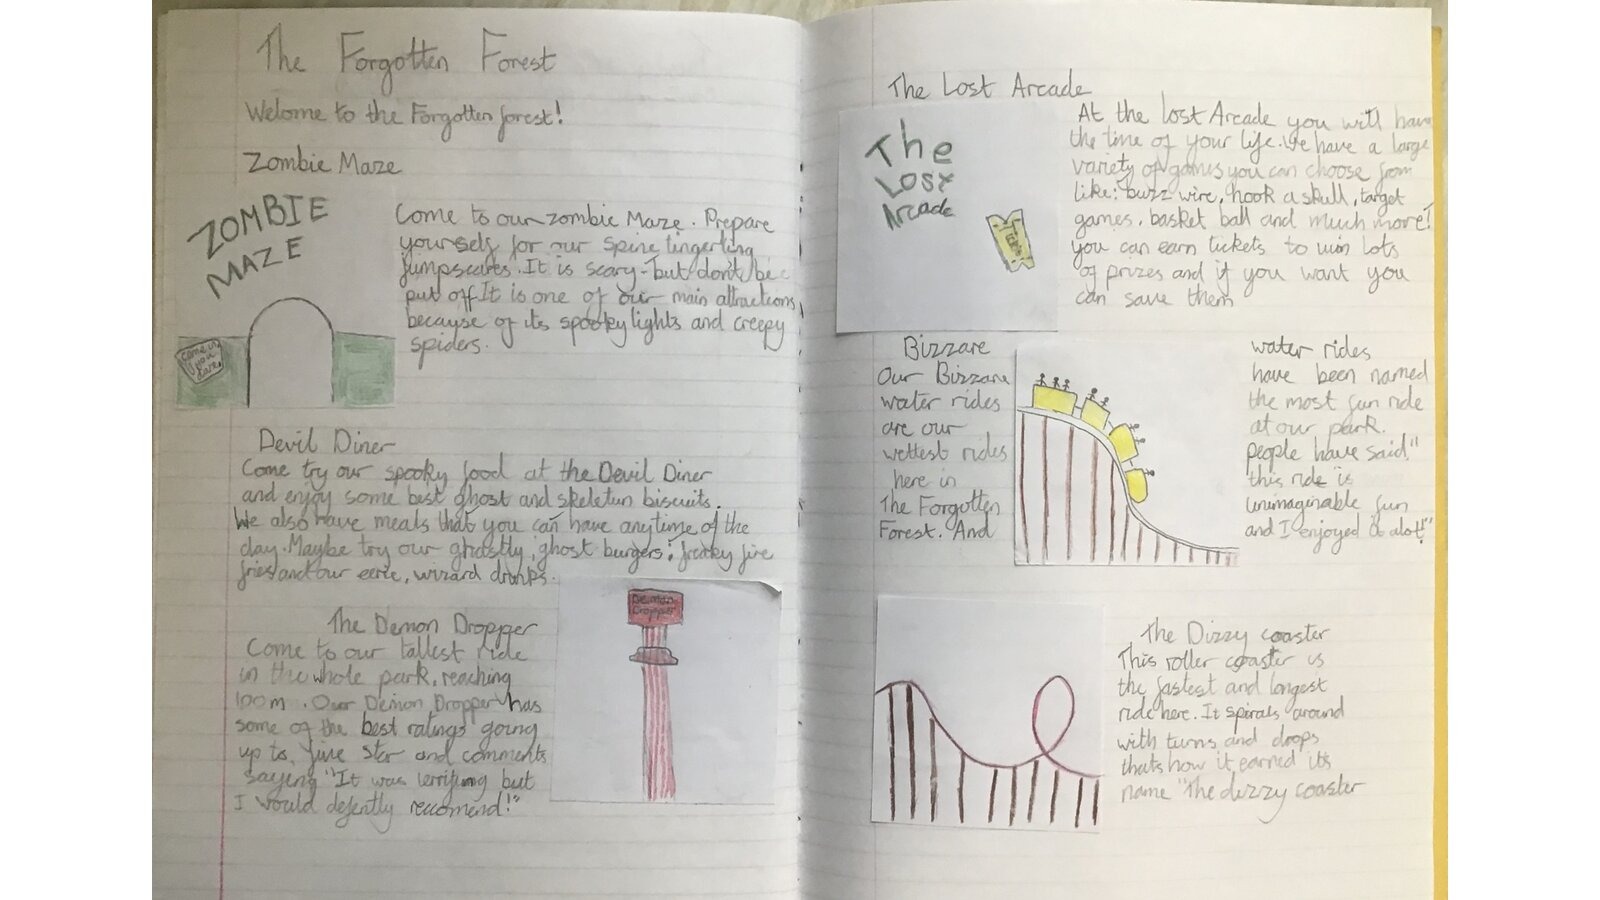 The Forgotten Forest
Welcome to the Forgotten forest!
Zombie Maze
ZOMBIE
MAZE
come in
if you
dare
Come to our zombie Maze. Prepare
yourself for our spine lingerling
jumpscares. It is scary but don't be
put off It is one of our main attractions
because of its spooky lights and creepy
spiders.
Devil Diner
Come try our spooky food at the Devil Diner
and enjoy some best ghost and skeletun biscuits.
We also have meals that you can have anytime of the
day. Maybe try our ghastly, ghost burgers, freaky fire
fries and our eerie, wizard drinks.
The Demon Dropper
Come to our tallest ride
in the whole park, reaching
100m. Our Demon Dropper has
some of the best ratings going
up to five star and comments
saying "It was terrifying but
I would defently reccomend!"
Demon
Dropper
The Lost Arcade
The
Lost
Arcade
Tickets
At the lost Arcade you will have
the time of your life. We have a large
variety of games you can choose from
like: buzz wire, hook a skull, target
games, basket ball and much more!
you can earn tickets to win lots
of prizes and if you want you
can save them
Bizzare
Our Bizzare
water rides
are our
wettest rides
here in
The Forgotten
Forest. And
water rides
have been named
the most fun ride
at our park.
people have said"
this ride is
unimaginable fun
and I enjoyed it alot!"
The Dizzy coaster
This roller coaster is
the fastest and longest
ride here. It spirals around
with turns and drops
thats how it earned its
name "The dizzy coaster